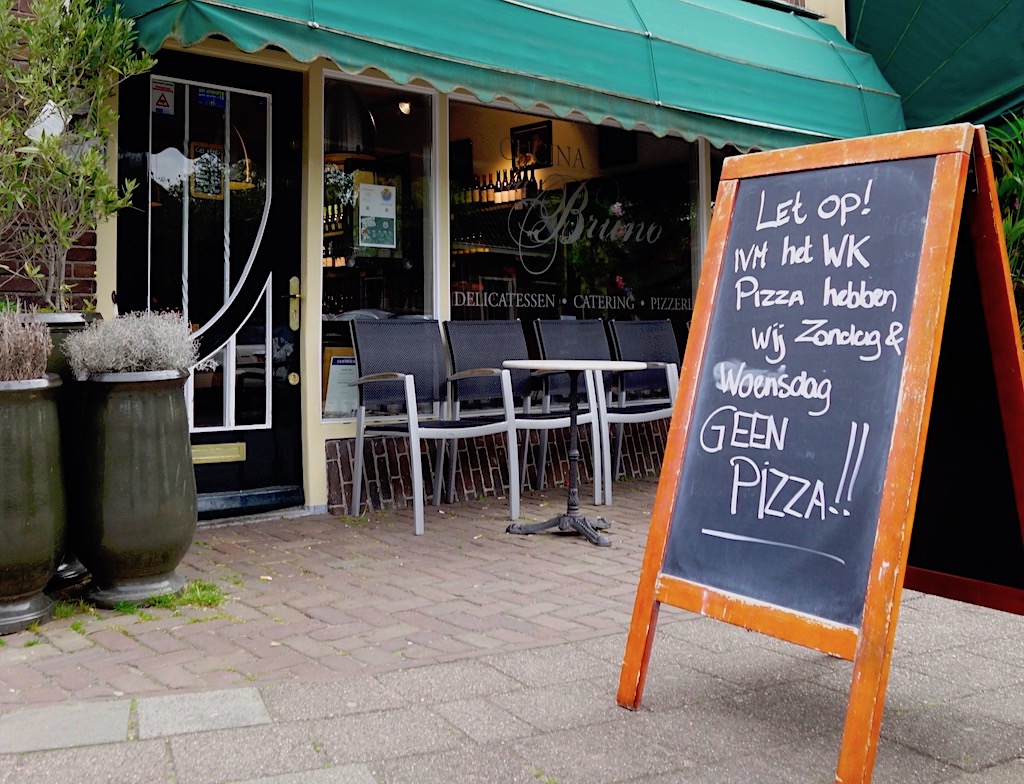 CUCINA
Bruno
DELICATESSEN • CATERING • PIZZERI
Let op!
IVM het WK
Pizza hebben
Wij Zondag &
Woensdag
GEEN
PIZZA!!